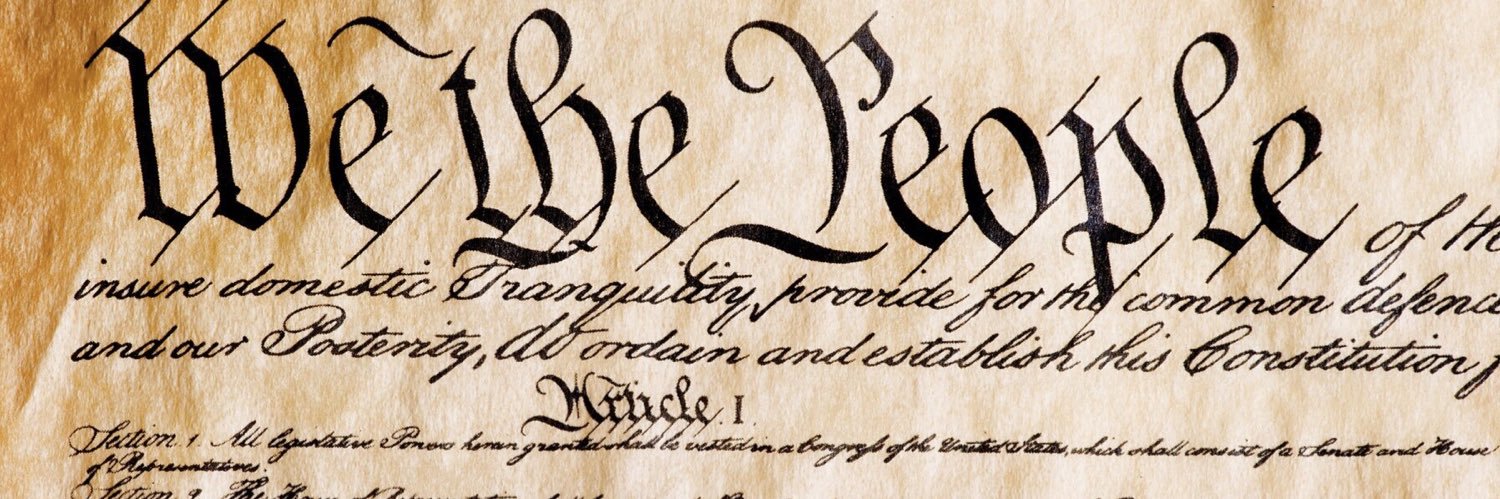 We the People of the
insure domestic Tranquility, provide for the common defence
and our Posterity, do ordain and establish this Constitution f
Article. I
Section 1. All legislative Powers herein granted shall be vested in a Congress of the United States, which shall consist of a Senate and House
of Representatives.
Section 2. The House of Representatives